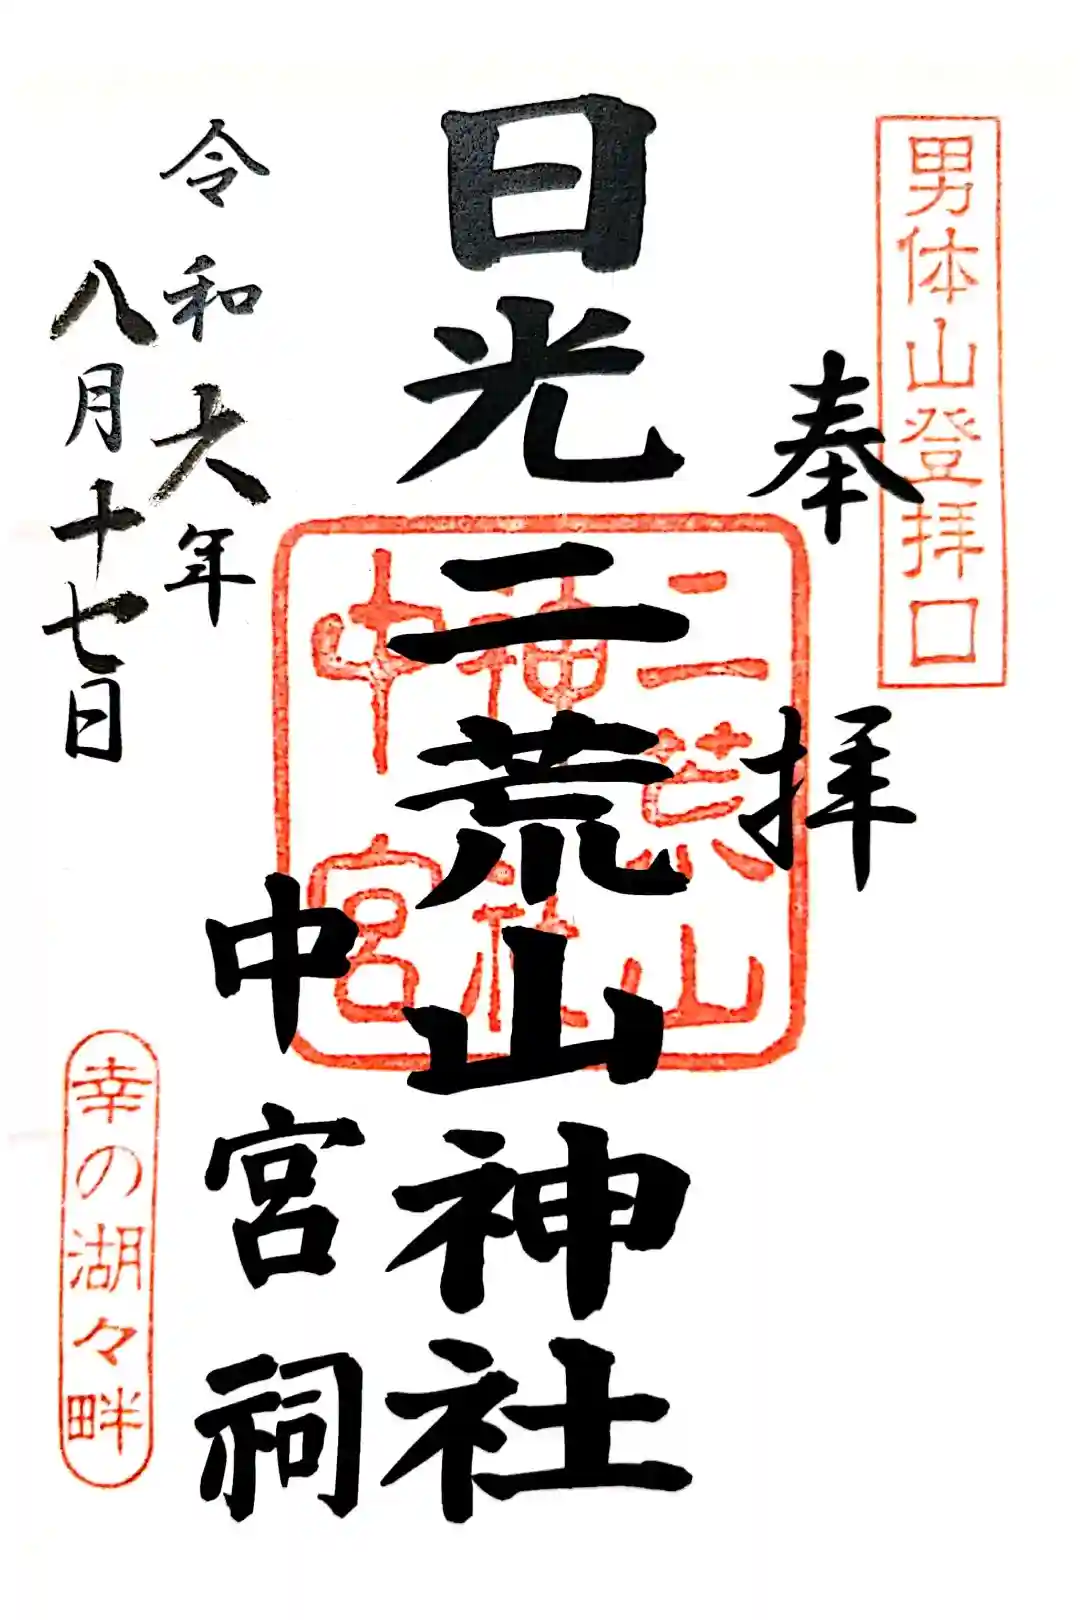 男体山登拝口
奉拝
日光二荒山神社
二荒山
神社
中宮
中宮祠
令和六年
八月十七日
幸の湖々畔